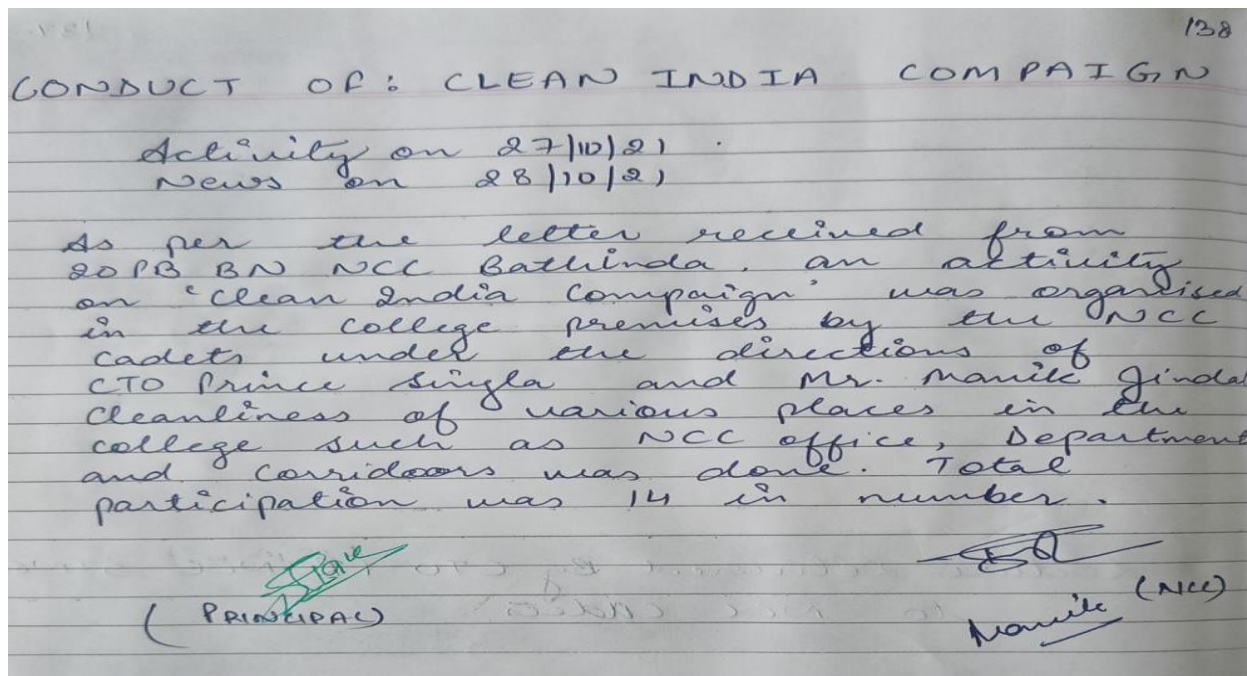 138
CONDUCT OF : CLEAN INDIA COMPAIGN
Activity on 27/10/21
News on 28/10/21
As per the letter received from
20 PB BN NCC Bathinda, an activity
on 'Clean India Compaign' was organised
in the college premises by the NCC
cadets under the directions of
CTO Prince Singla and Mr. Manik Jindal
Cleanliness of various places in the
college such as NCC office, Department
and corridoors was done. Total
participation was 14 in number.
(PRINCIPAL)
(NCC)
Manik